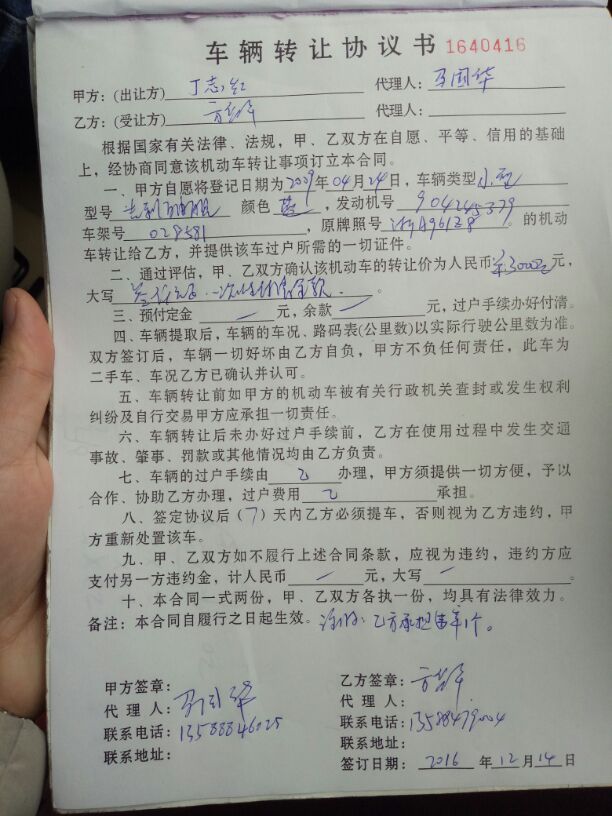 车辆转让协议书 1640416
甲方：(出让方) 丁志红 代理人：
乙方：(受让方) 代理人：
根据国家有关法律、法规，甲、乙双方在自愿、平等、信用的基础
上，经协商同意该机动车转让事项订立本合同。
一、甲方自愿将登记日期为2009年04月24日，车辆类型小型
型号 颜色 蓝 ，发动机号 904245379
车架号 029581 ，原牌照号 浙A96128 。的机动
车转让给乙方，并提供该车过户所需的一切证件。
二、通过评估，甲、乙双方确认该机动车的转让价为人民币 元，
大写 。
三、预付定金 一 元，余款 一 元，过户手续办好付清。
四、车辆提取后，车辆的车况、路码表(公里数)以实际行驶公里数为准。
双方签订后，车辆一切好坏由乙方自负，甲方不负任何责任，此车为
二手车、车况乙方已确认并认可。
五、车辆转让前如甲方的机动车被有关行政机关查封或发生权利
纠纷及自行交易甲方应承担一切责任。
六、车辆转让后未办好过户手续前，乙方在使用过程中发生交通
事故、肇事、罚款或其他情况均由乙方负责。
七、车辆的过户手续由 乙 办理，甲方须提供一切方便，予以
合作、协助乙方办理，过户费用 乙 承担。
八、签定协议后(7)天内乙方必须提车，否则视为乙方违约，甲
方重新处置该车。
九、甲、乙双方如不履行上述合同条款，应视为违约，违约方应
支付另一方违约金，计人民币 一 元，大写 一 。
十、本合同一式两份，甲、乙双方各执一份，均具有法律效力。
备注：本合同自履行之日起生效。 乙方承担
甲方签章：
代理人：
联系电话：13588846025
联系地址：
乙方签章：
代理人：
联系电话：13588479004
联系地址：
签订日期：2016年12月14日